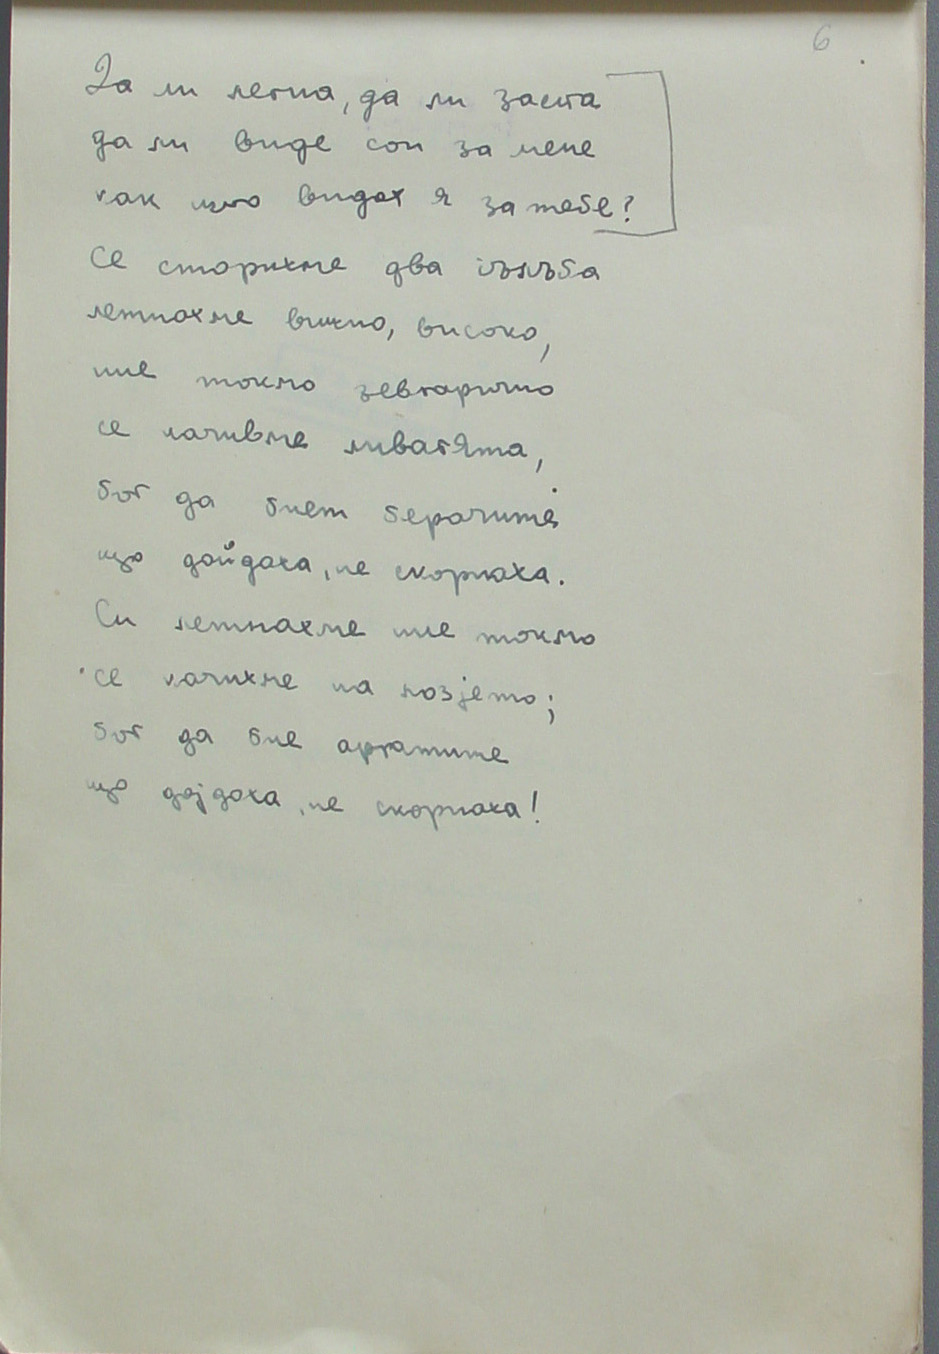 6
Да ли легна, да ли заспа
да ли виде сон за мене
как што видох я за тебе?
Се сторихме два гълъба
летнахме вишно, високо,
ние токмо
се качивме ливагята,
бог да бием берачите
що дойдоха, не скорнаха.
Си летнахме ние токмо
се качихме на лозјето;
бог да бие аргатите
що дојдоха, не скорнаха!